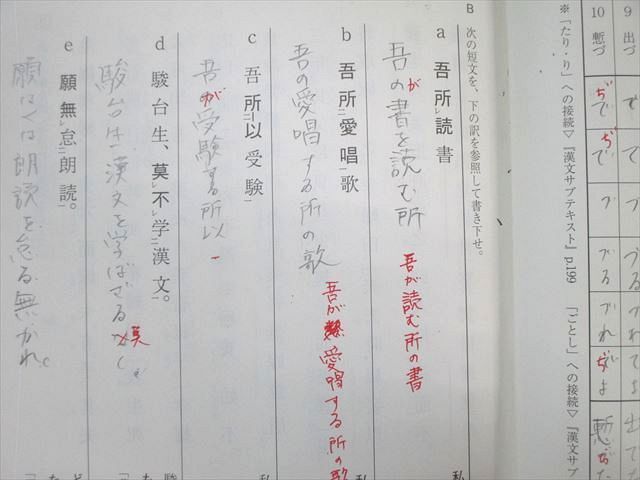 9 出づ で で づ づる づれ でよ 出でた
10 慙づ ぢ で ぢ で づ づる づれ ぢ よ 慙ぢた
※「たり・り」への接続▽『漢文サブテキスト』p.199 「ごとし」への接続▽『漢文サブ
B 次の短文を、下の訳を参照して書き下せ。
a 吾所レ読書
吾のが書を読む所
吾が読む所の書
b 吾所二愛唱一歌
吾の愛唱する所の歌
吾が愛唱する所の歌
c 吾所二以受験一
吾が受験する所以
d 駿台生、莫レ不レ学二漢文一。
駿台生漢文を学ばざる莫し。
e 願無レ怠二朗読一。
願はくは朗読を怠る無かれ。